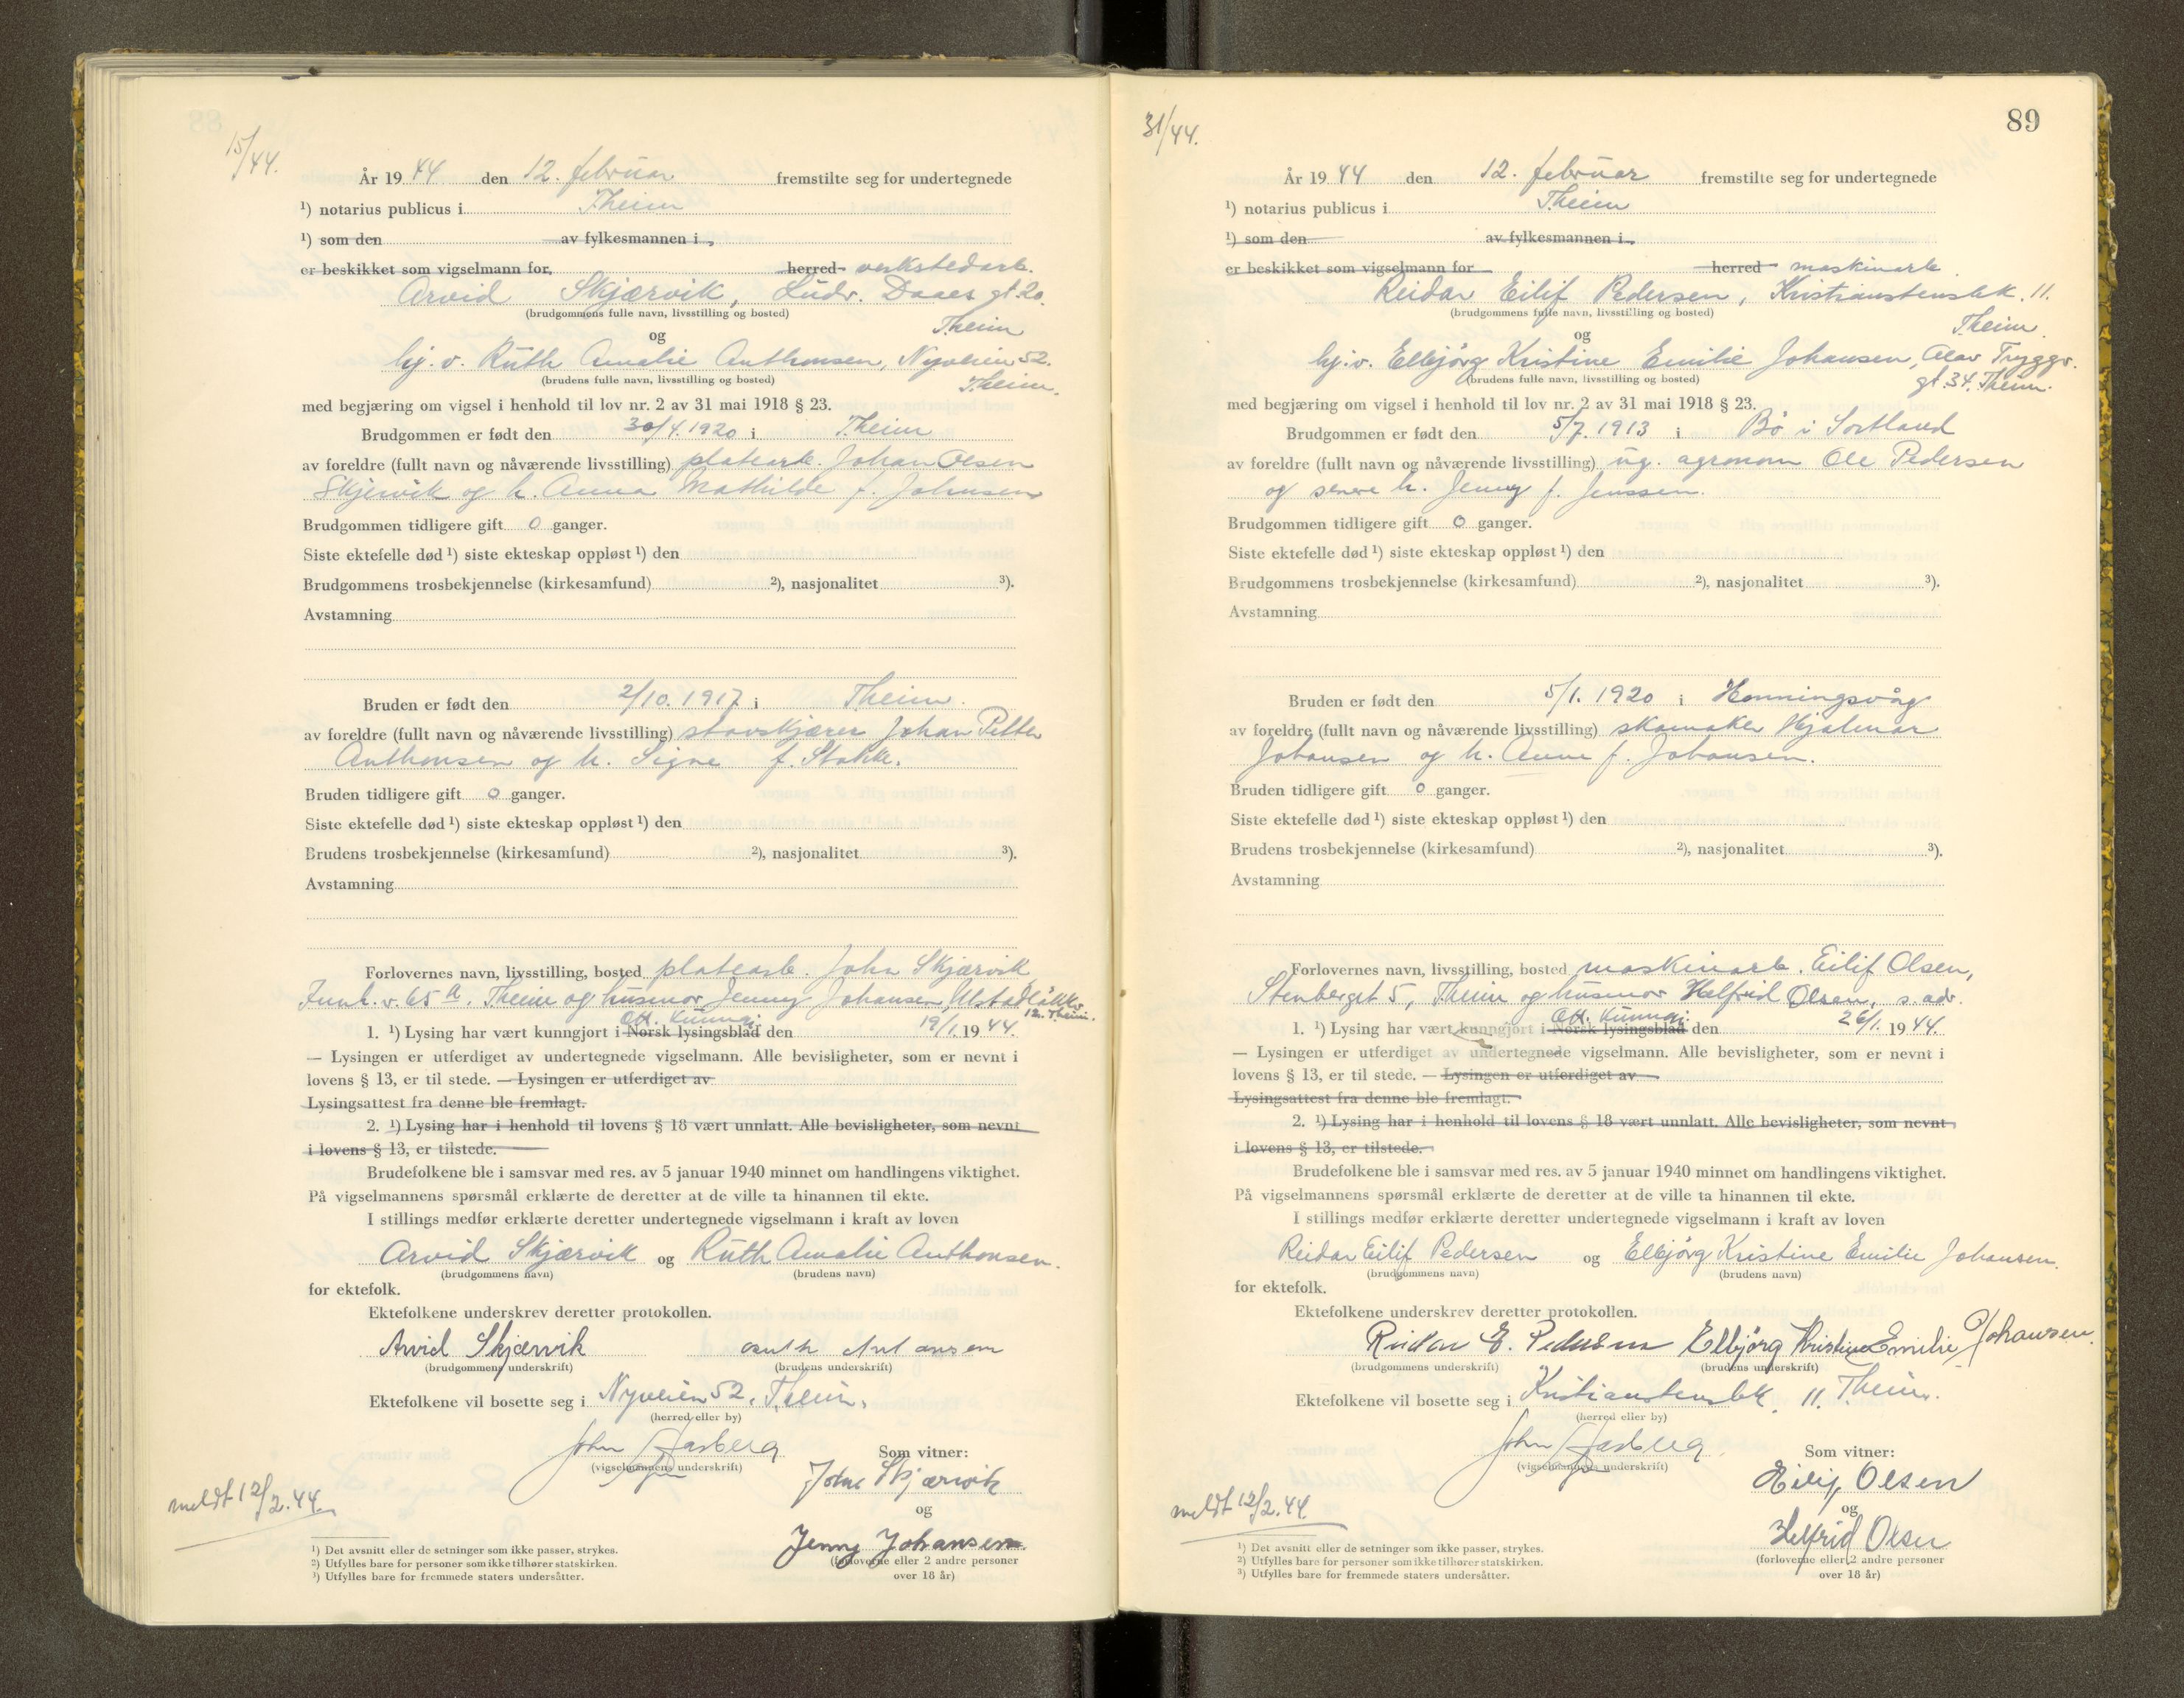 15/44.
År 19 44 den 12. februar fremstilte seg for undertegnede
¹) notarius publicus i Theim
¹) som den av fylkesmannen i
er beskikket som vigselmann for herred verkstedarb.
Arvid Skjærvik, Ludv. Daaes gt. 20.
(brudgommens fulle navn, livsstilling og bosted)
Theim
og
hj. v. Ruth Amalie Anthonsen, Nyveien 52.
(brudens fulle navn, livsstilling og bosted)
Theim.
med begjæring om vigsel i henhold til lov nr. 2 av 31 mai 1918 § 23.
Brudgommen er født den 30/4.1920 i Theim
av foreldre (fullt navn og nåværende livsstilling) platearb. Johan Olsen
Skjervik og h. Anna Mathilde f. Johnsen
Brudgommen tidligere gift 0 ganger.
Siste ektefelle død ¹) siste ekteskap oppløst ¹) den
Brudgommens trosbekjennelse (kirkesamfund) ²), nasjonalitet ³).
Avstamning
Bruden er født den 2/10.1917 i Theim.
av foreldre (fullt navn og nåværende livsstilling) stavskjærer Johan Petter
Anthonsen og h. Signe f. Stokk.
Bruden tidligere gift 0 ganger.
Siste ektefelle død ¹) siste ekteskap oppløst ¹) den
Brudens trosbekjennelse (kirkesamfund) ²), nasjonalitet ³).
Avstamning
Forlovernes navn, livsstilling, bosted platearb. John Skjærvik
v. 65 A. Theim og husmor Jenny Johansen,
12. Theim.
Off. kunngj.
1. ¹) Lysing har vært kunngjort i Norsk lysingsblad den 19/1. 19 44.
— Lysingen er utferdiget av undertegnede vigselmann. Alle bevisligheter, som er nevnt i
lovens § 13, er til stede. — Lysingen er utferdiget av
Lysingsattest fra denne ble fremlagt.
2. ¹) Lysing har i henhold til lovens § 18 vært unnlatt. Alle bevisligheter, som nevnt
i lovens § 13, er tilstede.
Brudefolkene ble i samsvar med res. av 5 januar 1940 minnet om handlingens viktighet.
På vigselmannens spørsmål erklærte de deretter at de ville ta hinannen til ekte.
I stillings medfør erklærte deretter undertegnede vigselmann i kraft av loven
Arvid Skjærvik og Ruth Amalie Anthonsen.
(brudgommens navn) (brudens navn)
for ektefolk.
Ektefolkene underskrev deretter protokollen.
Arvid Skjærvik
(brudgommens underskrift) (brudens underskrift)
Ektefolkene vil bosette seg i Nyveien 52, Theim.
(herred eller by)
John Aasberg
(vigselmannens underskrift)
Som vitner:
John Skjærvik
og
Jenny Johansen.
(forloverne eller 2 andre personer
over 18 år)
meldt 12/2.44.
¹) Det avsnitt eller de setninger som ikke passer, strykes.
²) Utfylles bare for personer som ikke tilhører statskirken.
³) Utfylles bare for fremmede staters undersåtter.
89
31/44.
År 19 44 den 12. februar fremstilte seg for undertegnede
¹) notarius publicus i Theim
¹) som den av fylkesmannen i
er beskikket som vigselmann for herred maskinarb.
Reidar Eilif Pedersen, Kristianstensbk. 11.
(brudgommens fulle navn, livsstilling og bosted)
Theim.
og
hj. v. Elbjörg Kristine Emilie Johansen, Olav Tryggv.
(brudens fulle navn, livsstilling og bosted)
gt. 34. Theim.
med begjæring om vigsel i henhold til lov nr. 2 av 31 mai 1918 § 23.
Brudgommen er født den 5/7.1913 i Bö i Sortland
av foreldre (fullt navn og nåværende livsstilling) ug. agronom Ole Pedersen
og senere h. Jenny f. Jenssen.
Brudgommen tidligere gift 0 ganger.
Siste ektefelle død ¹) siste ekteskap oppløst ¹) den
Brudgommens trosbekjennelse (kirkesamfund) ²), nasjonalitet ³).
Avstamning
Bruden er født den 5/1.1920 i Honningsvåg
av foreldre (fullt navn og nåværende livsstilling) skomaker Hjalmar
Johansen og h. Anne f. Johansen.
Bruden tidligere gift 0 ganger.
Siste ektefelle død ¹) siste ekteskap oppløst ¹) den
Brudens trosbekjennelse (kirkesamfund) ²), nasjonalitet ³).
Avstamning
Forlovernes navn, livsstilling, bosted maskinarb. Eilif Olsen,
Stenberget 5, Theim og husmor Helfrid Olsen, s. adr.
Off. kunngj.
1. ¹) Lysing har vært kunngjort i Norsk lysingsblad den 26/1. 19 44.
— Lysingen er utferdiget av undertegnede vigselmann. Alle bevisligheter, som er nevnt i
lovens § 13, er til stede. — Lysingen er utferdiget av
Lysingsattest fra denne ble fremlagt.
2. ¹) Lysing har i henhold til lovens § 18 vært unnlatt. Alle bevisligheter, som nevnt
i lovens § 13, er tilstede.
Brudefolkene ble i samsvar med res. av 5 januar 1940 minnet om handlingens viktighet.
På vigselmannens spørsmål erklærte de deretter at de ville ta hinannen til ekte.
I stillings medfør erklærte deretter undertegnede vigselmann i kraft av loven
Reidar Eilif Pedersen og Elbjörg Kristine Emilie Johansen.
(brudgommens navn) (brudens navn)
for ektefolk.
Ektefolkene underskrev deretter protokollen.
Reidar E. Pedersen Elbjörg Kristine Emilie Johansen.
(brudgommens underskrift) (brudens underskrift)
Ektefolkene vil bosette seg i Kristianstensbk. 11. Theim.
(herred eller by)
John Aasberg
(vigselmannens underskrift)
Som vitner:
Eilif Olsen
og
Helfrid Olsen
(forloverne eller 2 andre personer
over 18 år)
meldt 12/2.44.
¹) Det avsnitt eller de setninger som ikke passer, strykes.
²) Utfylles bare for personer som ikke tilhører statskirken.
³) Utfylles bare for fremmede staters undersåtter.